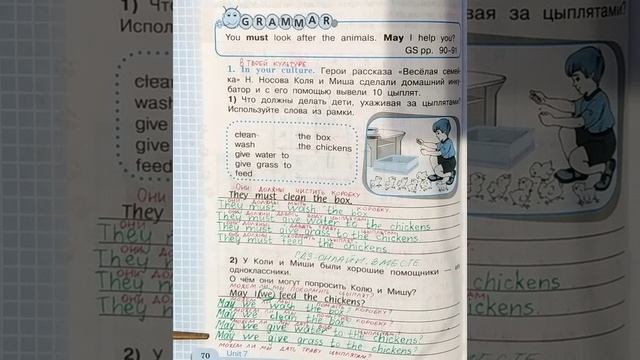 GRAMMAR
You must look after the animals. May I help you?
GS pp. 90-91
В ТВОЕЙ КУЛЬТУРЕ
1. In your culture. Герои рассказа «Весёлая семей-
ка» Н. Носова Коля и Миша сделали домашний инку-
батор и с его помощью вывели 10 цыплят.
1) Что должны делать дети, ухаживая за цыплятами?
Используйте слова из рамки.
clean the box
wash the chickens
give water to
give grass to
feed
ОНИ ДОЛЖНЫ ЧИСТИТЬ КОРОБКУ
They must clean the box.
They must wash the box
They must give water to the chickens
They must give grass to the chickens
They must feed the chickens.
ГДЗ-ОНЛАЙН. ВМЕСТЕ
2) У Коли и Миши были хорошие помощники — их
одноклассники.
О чём они могут попросить Колю и Мишу?
МОЖЕМ ЛИ МЫ ПОКОРМИТЬ ЦЫПЛЯТ?
May I (we) feed the chickens?
May we wash the box?
May we clean the box?
May we give water to the chickens?
May we give grass to the chickens?
70 Unit 7
МОЖЕМ ЛИ МЫ ДАТЬ ТРАВУ ЦЫПЛЯТАМ?